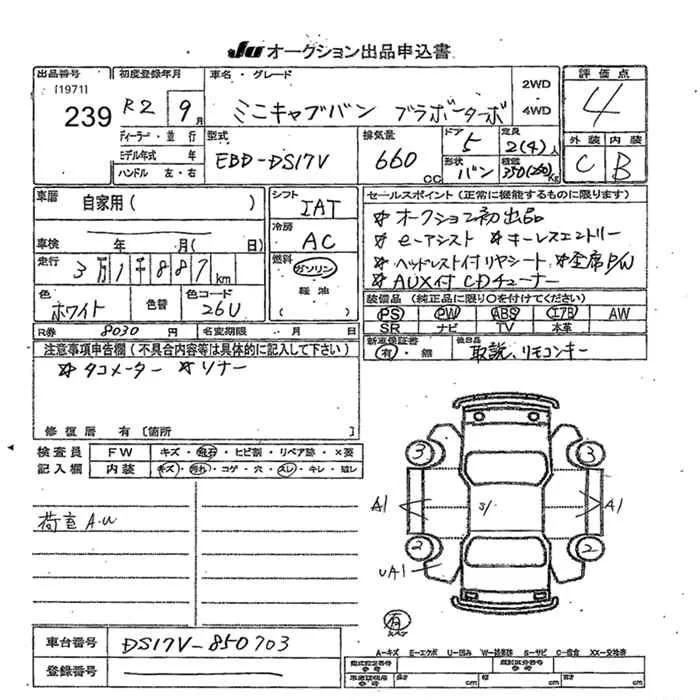 JU オークション出品申込書
出品番号 初度登録年月 車名・グレード 2WD 4WD 評価点
[1971]
239 R2 9月 ミニキャブバン ブラボーターボ 4
ディーラー・並行 型式 排気量 ドア 定員 外装 内装
モデル年式 年 EBD-DS17V 660CC 5 2(4)人 C B
ハンドル 左・右 形状 バン 積載 350(250)Kg
車歴 自家用( ) シフト IAT セールスポイント(正常に機能するものに限ります)
☆オークション初出品
車検 年 月( 日) 冷房 AC ☆e-アシスト ☆キーレスエントリー
走行 3万1千887km 燃料 ガソリン ☆ヘッドレスト付リヤシート ☆全席P/W
軽油 ☆AUX付CDチューナー
色 ホワイト 色替 色コード 26U ( ) 装備品(純正品に限り○を付けてください)
PS PW ABS エアB AW
R券 8030円 名変期限 月 日 SR ナビ TV 本革
注意事項申告欄(不具合内容等は具体的に記入して下さい) 新車保証書 有・無 後日品 取説、リモコンキー
☆タコメーター ☆ソナー
修復歴 有〔箇所 〕
検査員 FW キズ・飛石・ヒビ割・リペア跡・×要
記入欄 内装 キズ・汚れ・コゲ・穴・スレ・キレ・
荷室A.U
3 3
A1 S/ A1
2 2
UA1
有
車台番号 DS17V-850703
登録番号
A-キズ E-エクボ U-凹み W-補修跡 S-サビ C-腐食 XX-交換済
長さ cm 幅 cm 高さ cm